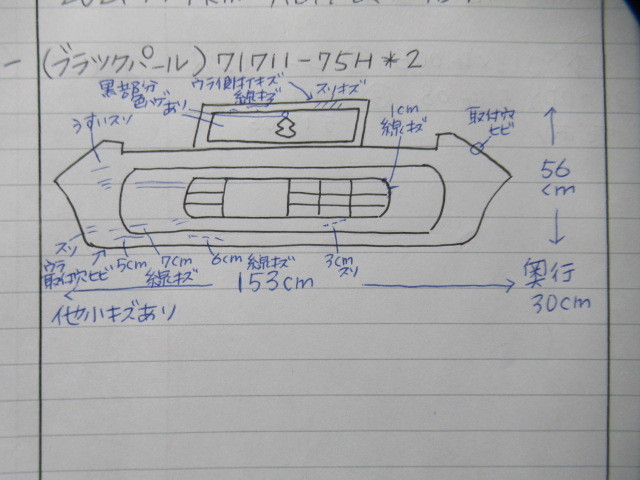 (ブラックパール) 71711-75H*2
黒部分
色ハゲあり
ウラ側キズ
線キズ
スリキズ
1cm
線キズ
取付穴
ヒビ
うすいスリ
56
cm
スリ
ウラ
取付穴ヒビ
5cm
7cm
線キズ
6cm
線キズ
3cm
スリ
153cm
奥行
30cm
他小キズあり